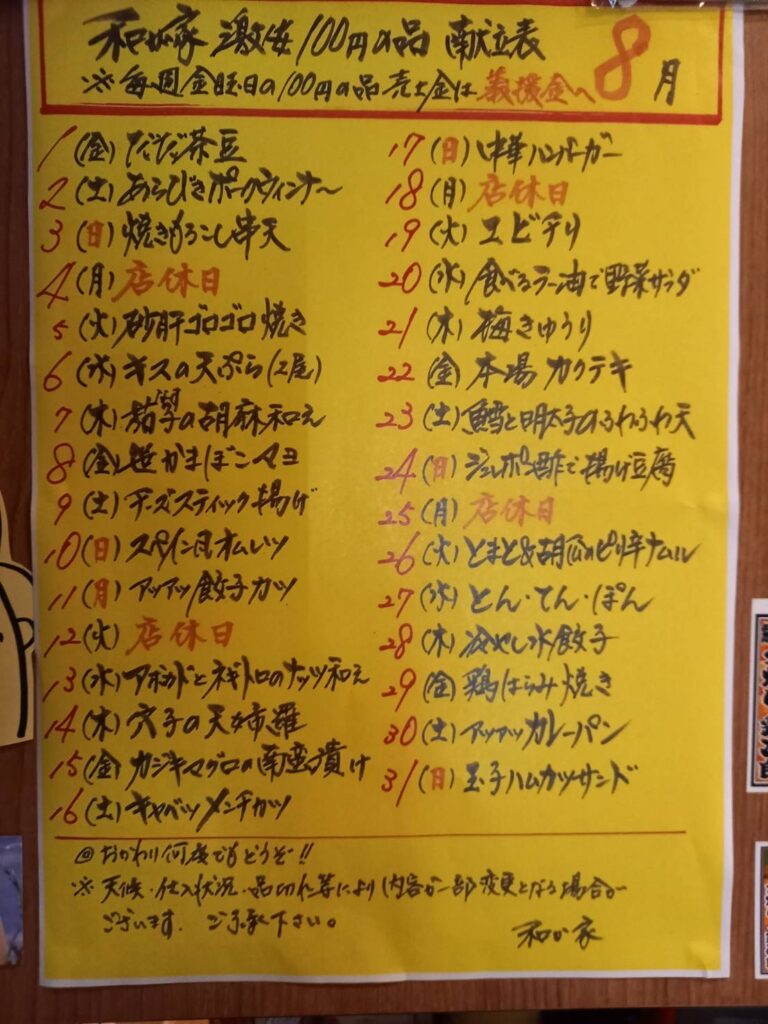 和が家 激安100円の品 献立表
※毎週金曜日の100円の品売上金は義援金へ
8月
1(金)だだ茶豆
2(土)あらびきポークウィンナー
3(日)焼きもろこし串天
4(月)店休日
5(火)砂肝ゴロゴロ焼き
6(水)キスの天ぷら(2尾)
7(木)茄子の胡麻和え
8(金)笹かまぼこマヨ
9(土)チーズスティック揚げ
10(日)スペイン風オムレツ
11(月)アツアツ餃子カツ
12(火)店休日
13(水)アボカドとネギトロのナッツ和え
14(木)穴子の天婦羅
15(金)カジキマグロの南蛮漬け
16(土)キャベツメンチカツ
17(日)中華ハンバーガー
18(月)店休日
19(火)エビチリ
20(水)食べるラー油で野菜サラダ
21(木)梅きゅうり
22(金)本場カクテキ
23(土)鱈と明太子のふわふわ天
24(日)ジュレポン酢で揚げ豆腐
25(月)店休日
26(火)とまと&胡瓜のピリ辛ナムル
27(水)とん・てん・ぽん
28(木)冷やし水餃子
29(金)鶏はらみ焼き
30(土)アツアツカレーパン
31(日)玉子ハムカツサンド
◎おかわり何度でもどうぞ!!
※天候・仕入状況・品切れ等により内容が一部変更となる場合が
ございます。ご了承下さい。
和が家